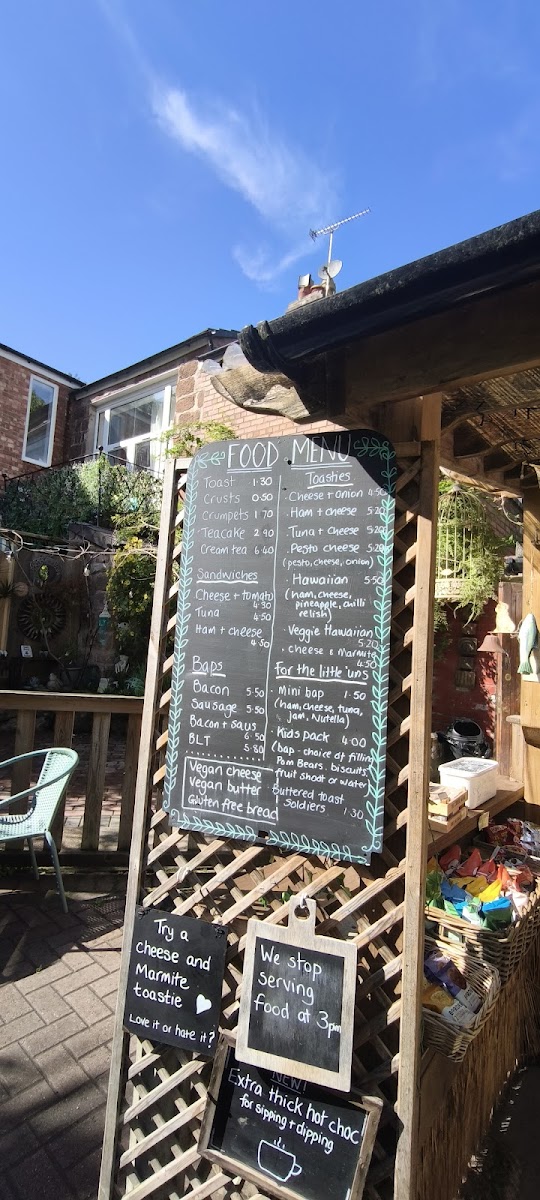 FOOD MENU
Toast 1·30
Crusts 0·50
Crumpets 1 70
Teacake 2 90
Cream tea 6·40
Sandwiches
Cheese + tomato
4·30
Tuna
4·50
Ham + cheese
4·50
Baps
Bacon 5·50
Sausage 5·50
Bacon + saus
6 50
BLT 5 80
Vegan cheese
Vegan butter
Gluten free bread
Toasties
Cheese + onion 4·50
Ham + cheese 5·20
Tuna + cheese 5·20
Pesto cheese 5·20
(pesto, cheese, onion)
Hawaiian 5·50
(ham, cheese,
pineapple, chilli
relish)
Veggie Hawaiian
5·20
cheese & marmite
4·50
for the little 'uns
mini bap 1·50
(ham, cheese, tuna,
jam, Nutella)
Kids pack 4·00
(bap - choice of filling
Pom Bears, biscuits,
fruit shoot or water
Buttered toast
Soldiers 1·30
Try a
cheese and
Marmite
toastie
Love it or hate it?
We stop
serving
food at 3pm
NEW!
Extra thick hot choc
for sipping + dipping